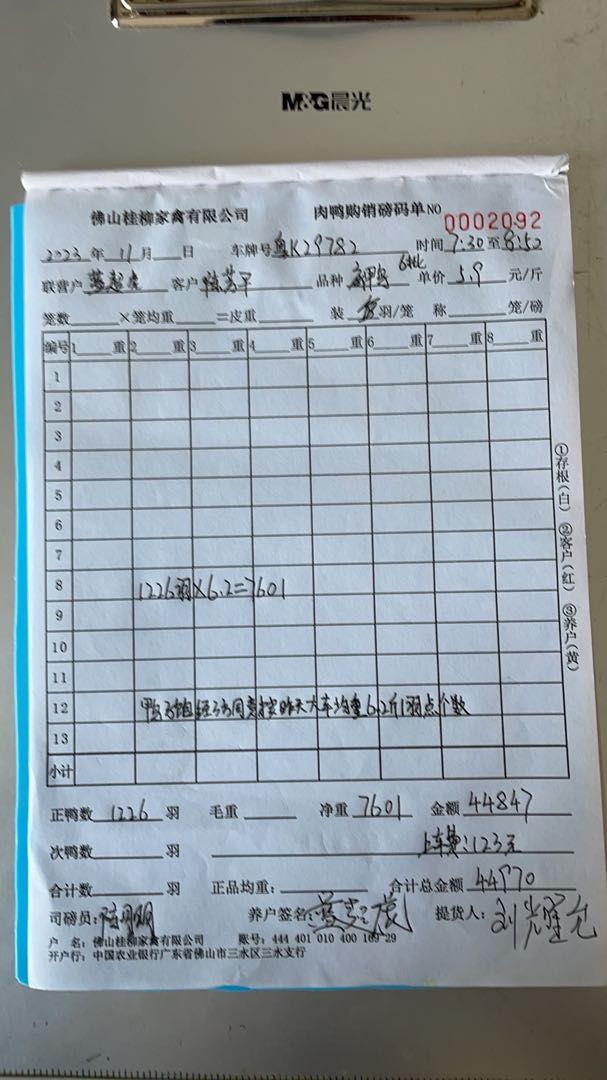 M&G晨光
佛山桂柳家禽有限公司 肉鸭购销磅码单 NO 0002092
2023年11月 日 车牌号 K29782 时间7:30至8:52
联营户 客户 品种 单价5.9元/斤
笼数 ×笼均重 =皮重 装 羽/笼 称 笼/磅
编号 1 重 2 重 3 重 4 重 5 重 6 重 7 重 8 重
1
2
3
4
5
6
7
8
1226羽×6.2=7601
9
10
11
12 鸭子 同意按昨天大车均重6.2斤1羽点个数
13
小计
①存根(白) ②客户(红) ③养户(黄)
正鸭数 1226 羽 毛重 净重 7601 金额 44847
次鸭数 羽 上车费:123元
合计数 羽 正品均重: 合计总金额 44970
司磅员: 养户签名: 提货人:
户 名: 佛山桂柳家禽有限公司 账号: 444 401 010 400 169 29
开户行: 中国农业银行广东省佛山市三水区三水支行